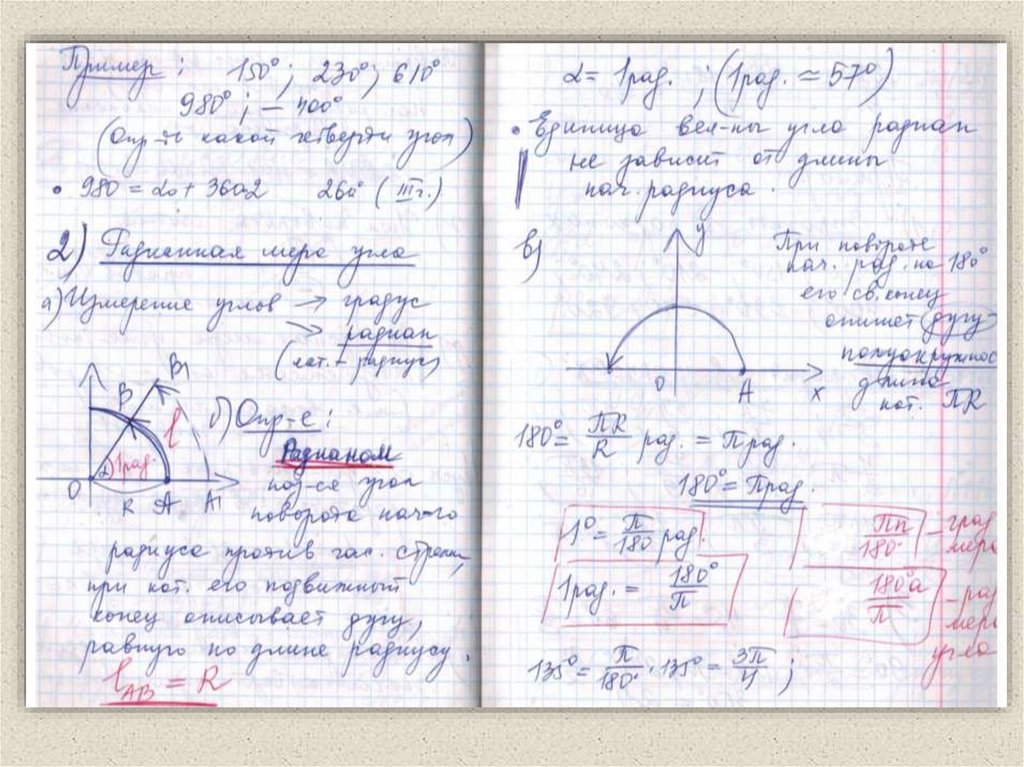 Пример: 150°; 230°; 610°
980°; – 400°
(Опр-ть какой четверти угол)
• 980 = α₀ + 360·2 260° (III г.)
2) Радианная мера угла
а) Измерение углов → градус
→ радиан
(лат. - радиус)
B B₁
l
α 1рад.
O R A A₁
б) Опр-е:
Радианом
наз-ся угол
поворота нач-го
радиуса против час. стрелки,
при кот. его подвижный
конец описывает дугу,
равную по длине радиусу.
l AB = R
α = 1рад. ; (1рад. ≈ 57°)
• Единица вел-ны угла радиан
не зависит от длины
нач. радиуса.
в)
y
O A x
При повороте
нач. рад. на 180°
его св. конец
опишет дугу-
полуокружнос
длина
кот. ПR
180° = ПR/R рад. = П рад.
180° = П рад.
1° = П/180 рад.
1рад. = 180°/П
Пn/180° – град
мера
180°a/П – рад
мера
угла
135° = П/180° · 135° = 3П/4 ;